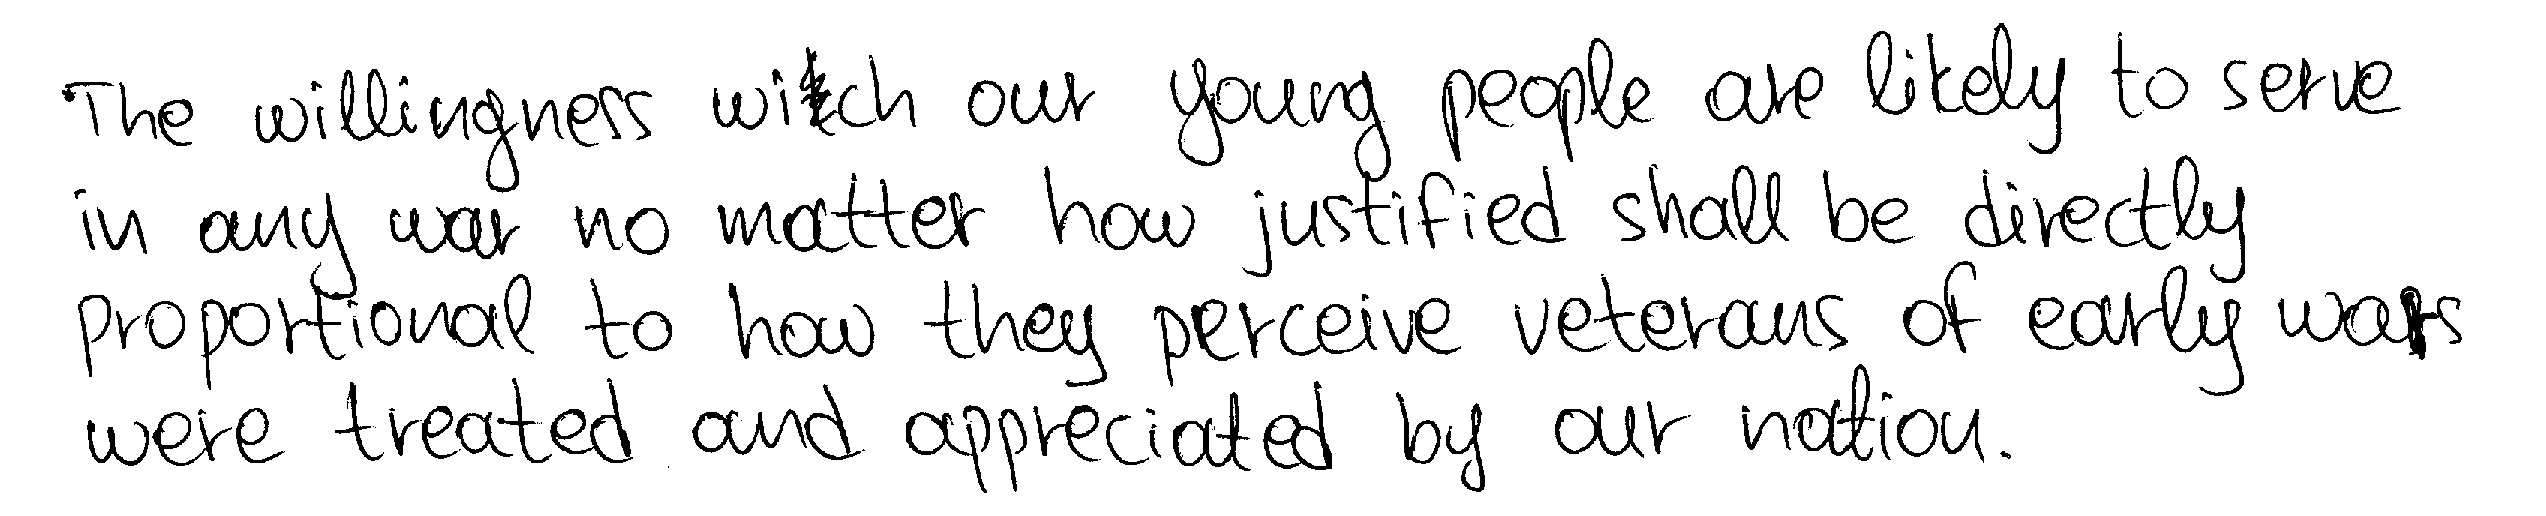 The willingness witch our young people are likely to serve
in any war no matter how justified shall be directly
proportional to how they perceive veterans of early wars
were treated and appreciated by our nation.